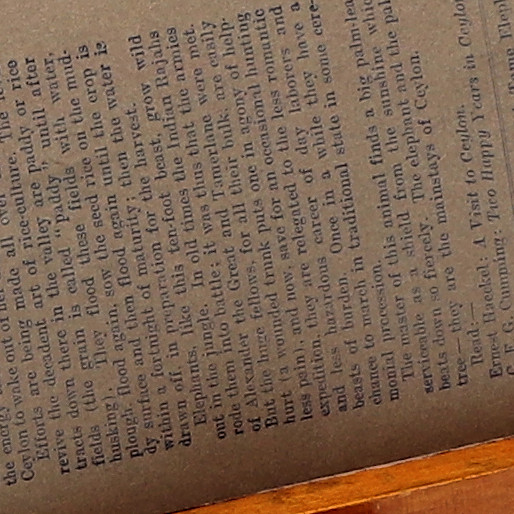 the energy
Ceylon to wake out of her
Efforts are being made all over
revive the decadent art of rice-culture.
tracts down there in the valley are paddy or rice
fields (the grain is called "paddy" until after
husking). They flood these fields with water,
plough, flood again, sow the seed rice on the mud-
dy surface and then flood again until the water is
within a fortnight of maturity; then the crop is
drawn off, in preparation for the harvest.
Elephants, like this ten-foot beast, grow wild
out in the jungle. In old times the Indian Rajahs
rode them into battle; it was thus that the armies
of Alexander the Great and Tamerlane were met.
But the huge fellows, for all their bulk, are easily
hurt (a wounded trunk puts one in agony of help-
less pain), and now, save for an occasional hunting
expedition, they are relegated to the less romantic
and less hazardous career of day laborers and
beasts of burden. Once in a while they have a
chance to march in traditional state in some cere-
monial procession.
The master of this animal finds a big palm-leaf
serviceable as a shield from the sunshine which
beats down so fiercely. The elephant and the palm
tree—they are the mainstays of Ceylon.
Read:—
Ernest Haeckel: A Visit to Ceylon.
C. F. G. Cumming: Two Happy Years in Ceylon